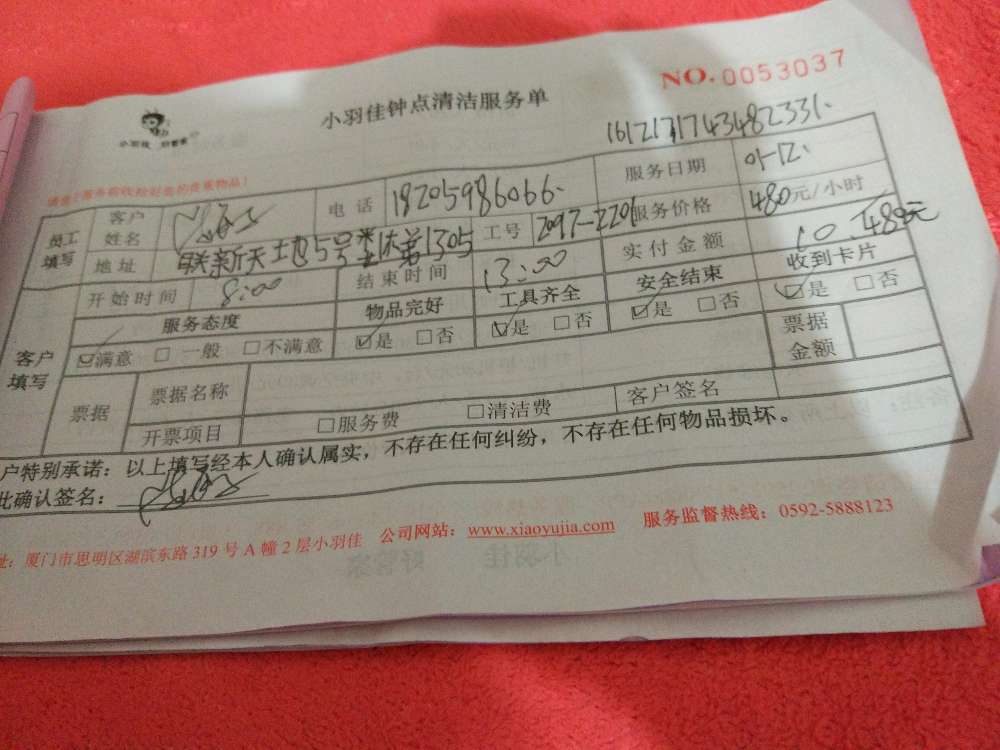 NO.0053037
小羽佳钟点清洁服务单
1612131743482331.
小羽佳 好管家
请您在服务前收检好您的贵重物品!
员工填写 客户姓名 电话 18205986066. 服务日期 01-12.
地址 联新天地5号 1305 工号 2097-2201 服务价格 480元/小时
客户填写 开始时间 8:00 结束时间 13:00 实付金额 10.480元
服务态度 物品完好 工具齐全 安全结束 收到卡片
☑满意 □一般 □不满意 ☑是 □否 ☑是 □否 ☑是 □否 ☑是 □否
票据 票据名称 票据金额
开票项目 □服务费 □清洁费 客户签名
户特别承诺:以上填写经本人确认属实,不存在任何纠纷,不存在任何物品损坏。
此确认签名:
址:厦门市思明区湖滨东路319号A幢2层小羽佳 公司网站:www.xiaoyujia.com 服务监督热线:0592-5888123